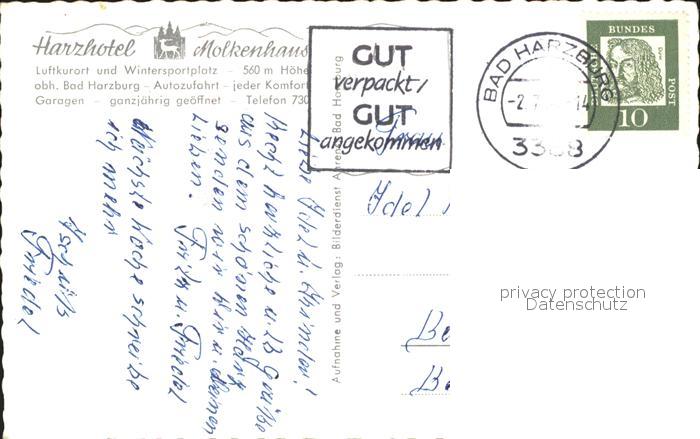 Harzhotel Molkenhaus
Luftkurort und Wintersportplatz – 560 m Höhe
obh. Bad Harzburg – Autozufahrt – jeder Komfort
Garagen – ganzjährig geöffnet – Telefon 730
GUT
verpackt/
GUT
angekommen
BAD HARZBURG
3388
BUNDES
POST
10
Aufnahme und Verlag: Bilderdienst Ahrens, Bad Harzburg
Liebe Idel u. Kinder!
Recht herzliche u. lb Grüße
aus dem schönen Harz
senden wir Dir u. Deinen
Lieben. Fritz u. Friedel
Nächste Woche schreibe
ich mehr
Friedel
Frau
Idel
privacy protection
Datenschutz